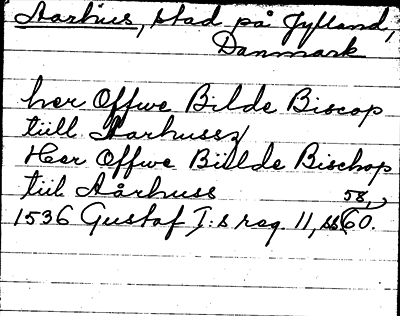 Aarhus, stad på Jylland,
Danmark
her Offwe Bilde Biscop
tiill Aarhussz
Her Offwe Biilde Bischop
tiil Aårhuss 58,
1536 Gustaf I:s reg. 11, ss 60.